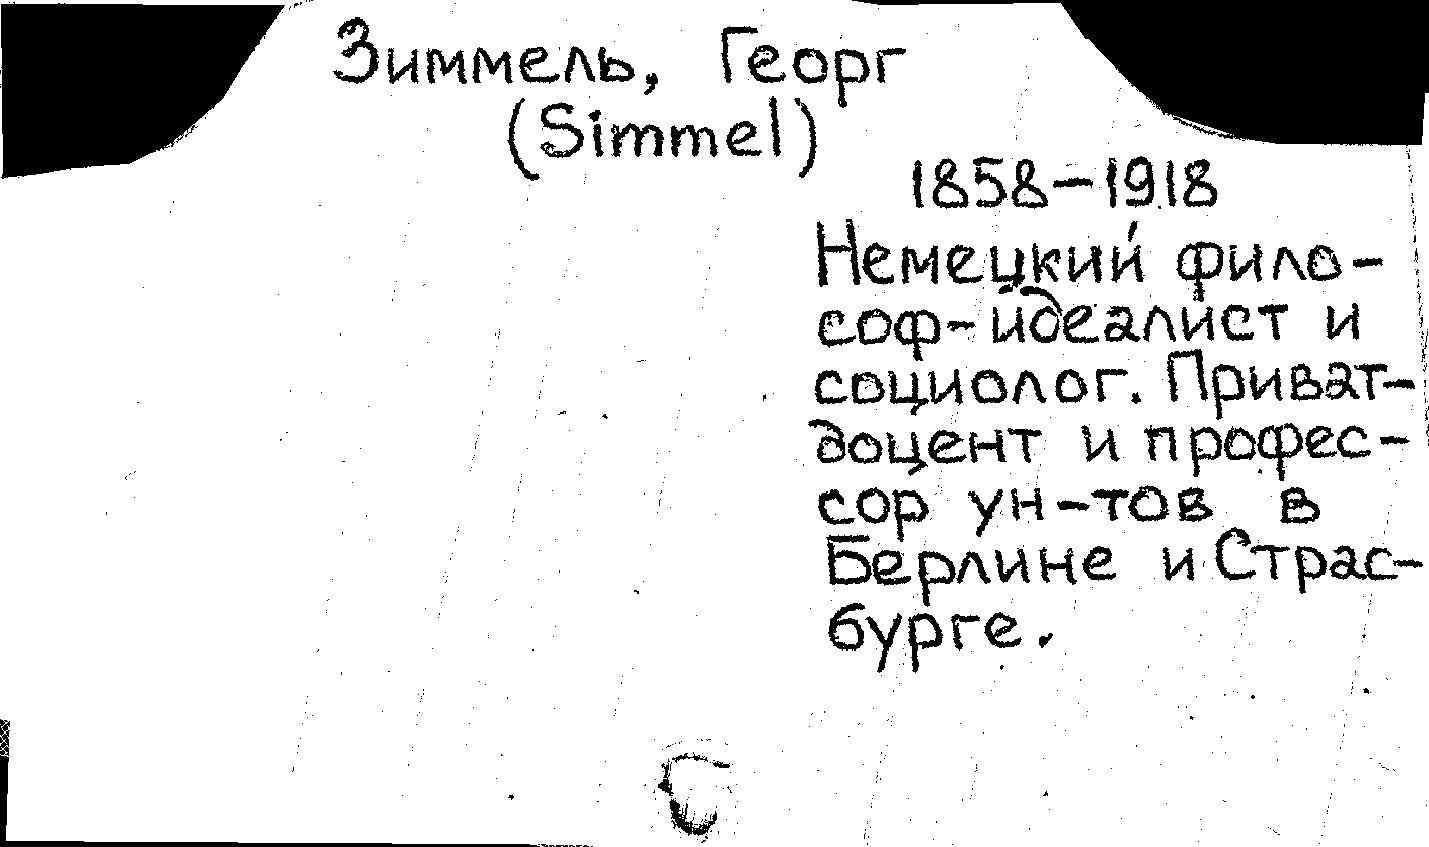 Зиммель, Георг
(Simmel)
1858-1918
Немецкий фило-
соф-идеалист и
социолог. Приват-
доцент и профес-
сор ун-тов в
Берлине и Страс-
бурге.